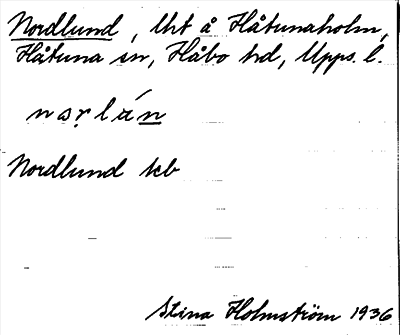 Nordlund, lht å Håtunaholm,
Håtuna sn, Håbo hd, Upps. l.
Nordlund kb
Stina Holmström 1936